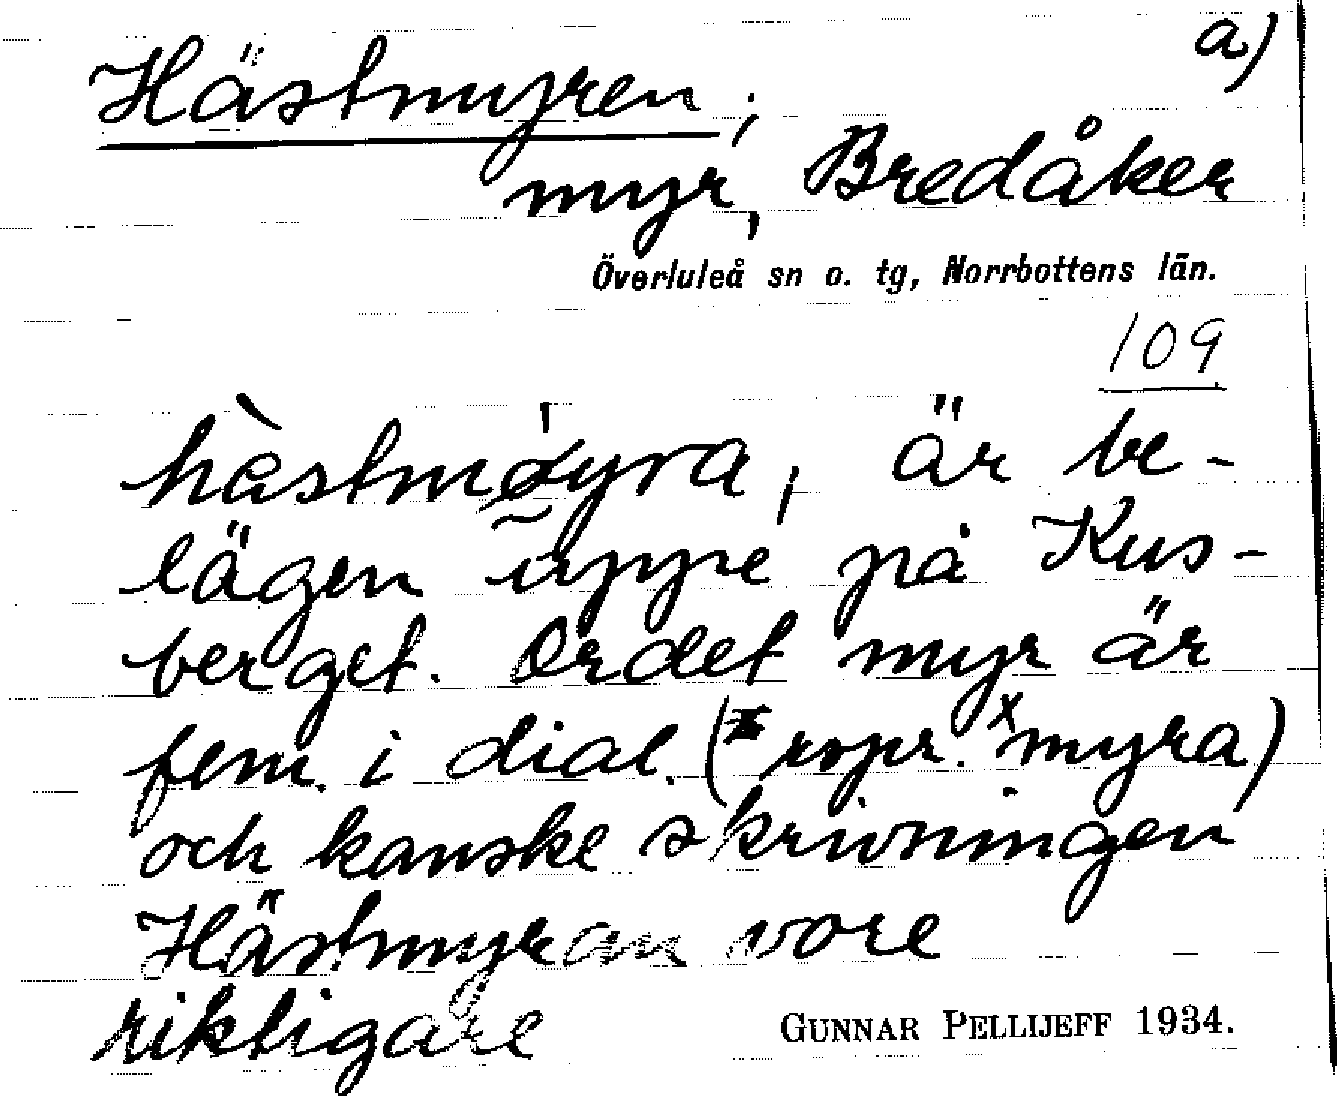 a)
Hästmyren,
myr, Bredåker
Överluleå sn o. tg, Norrbottens län.
109
hàstmøyra, är be-
lägen uppe på Kus-
berget. Ordet myr är
fem. i dial. ( ropr. ˣmyra)
och kanske skrivningen
Hästmyran vore
riktigare
GUNNAR PELLIJEFF 1934.